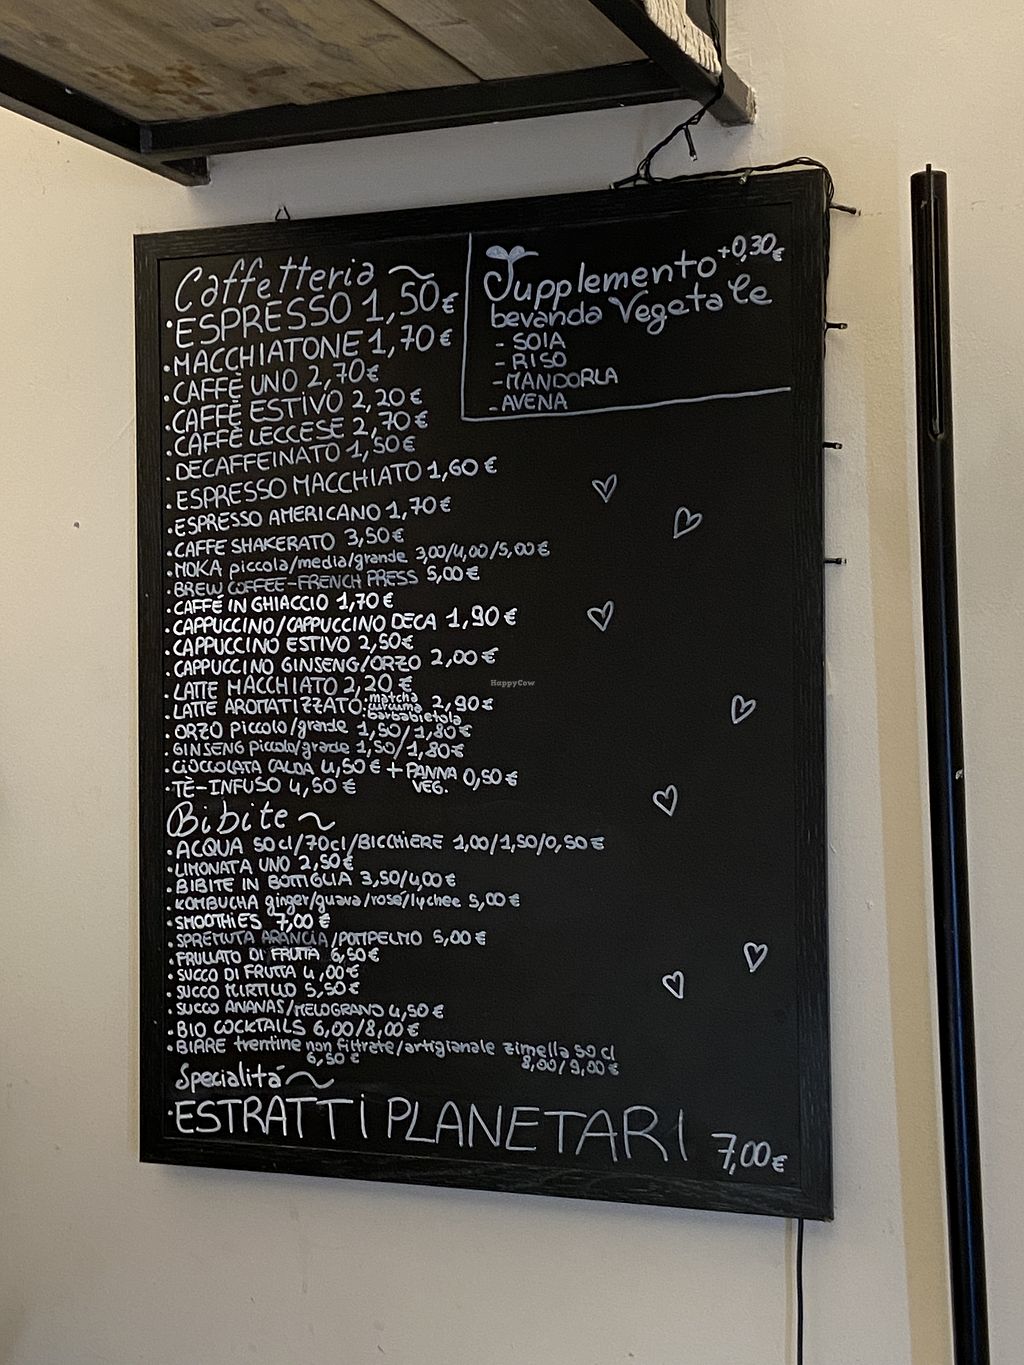 Caffetteria ~
• ESPRESSO 1,50€
• MACCHIATONE 1,70€
• CAFFÈ UNO 2,70€
• CAFFÈ ESTIVO 2,20€
• CAFFÈ LECCESE 2,70€
• DECAFFEINATO 1,50€
• ESPRESSO MACCHIATO 1,60€
• ESPRESSO AMERICANO 1,70€
• CAFFE SHAKERATO 3,50€
• MOKA piccola/media/grande 3,00/4,00/5,00€
• BREW COFFEE-FRENCH PRESS 5,00€
• CAFFÉ IN GHIACCIO 1,70€
• CAPPUCCINO/CAPPUCCINO DECA 1,90€
• CAPPUCCINO ESTIVO 2,50€
• CAPPUCCINO GINSENG/ORZO 2,00€
• LATTE MACCHIATO 2,20€
• LATTE AROMATIZZATO: matcha curcuma barbabietola 2,90€
• ORZO piccolo/grande 1,50/1,80€
• GINSENG piccolo/grande 1,50/1,80€
• CIOCCOLATA CALDA 4,50€ + PANNA VEG. 0,50€
• TÈ-INFUSO 4,50€
Supplemento +0,30€
bevanda Vegetale
- SOIA
- RISO
- MANDORLA
- AVENA
Bibite ~
• ACQUA 50cl/70cl/BICCHIERE 1,00/1,50/0,50€
• LIMONATA UNO 2,50€
• BIBITE IN BOTTIGLIA 3,50/4,00€
• KOMBUCHA ginger/guava/rose/lychee 5,00€
• SMOOTHIES 7,00€
• SPREMUTA ARANCIA/POMPELMO 5,00€
• FRULLATO DI FRUTTA 6,50€
• SUCCO DI FRUTTA 4,00€
• SUCCO MIRTILLO 5,50€
• SUCCO ANANAS/MELOGRANO 4,50€
• BIO COCKTAILS 6,00/8,00€
• BIRRE trentine non filtrate/artigianale zimella 50 cl
6,50€ 8,00/9,00€
Specialitá ~
• ESTRATTI PLANETARI 7,00€
HappyCow